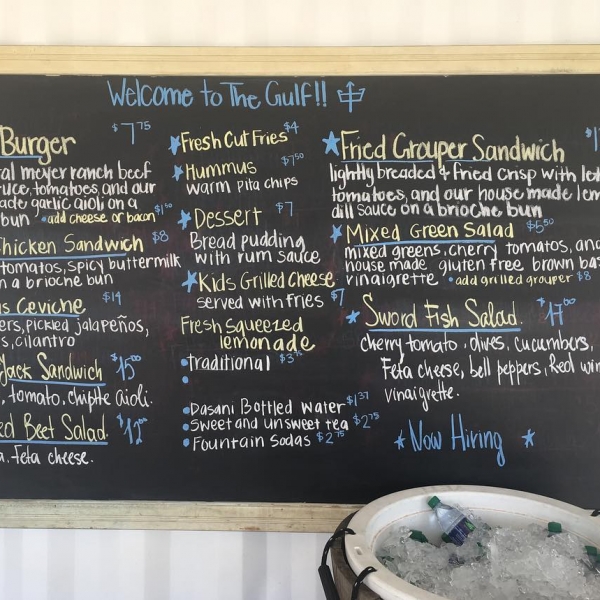 Welcome to The Gulf!!
Burger $7.75
meyer ranch beef
tomatoes, and our
garlic aioli on a
bun • add cheese or bacon $1.50
Chicken Sandwich $8
tomatos, spicy buttermilk
a brioche bun
Ceviche $14
pickled jalapeños,
cilantro
Jack Sandwich $15.00
, tomato, chiplte aioli.
Beet Salad $12
, feta cheese.
Fresh Cut Fries $4
Hummus $7.50
warm pita chips
Dessert $7
Bread pudding
with rum sauce
Kids Grilled Cheese
served with fries $7
Fresh Squeezed
lemonade
• traditional $3
•
• Dasani Bottled Water $1.37
• Sweet and Unsweet tea $2.75
• Fountain Sodas $2.75
Fried Grouper Sandwich
lightly breaded & fried crisp with
tomatoes, and our house made
dill sauce on a brioche bun
Mixed Green Salad $6.50
mixed greens, cherry tomatos, and
house made gluten free brown
vinaigrette • add grilled grouper $8
Sword Fish Salad $17.00
cherry tomato, olives, cucumbers,
Feta cheese, bell peppers, Red
vinaigrette.
Now Hiring